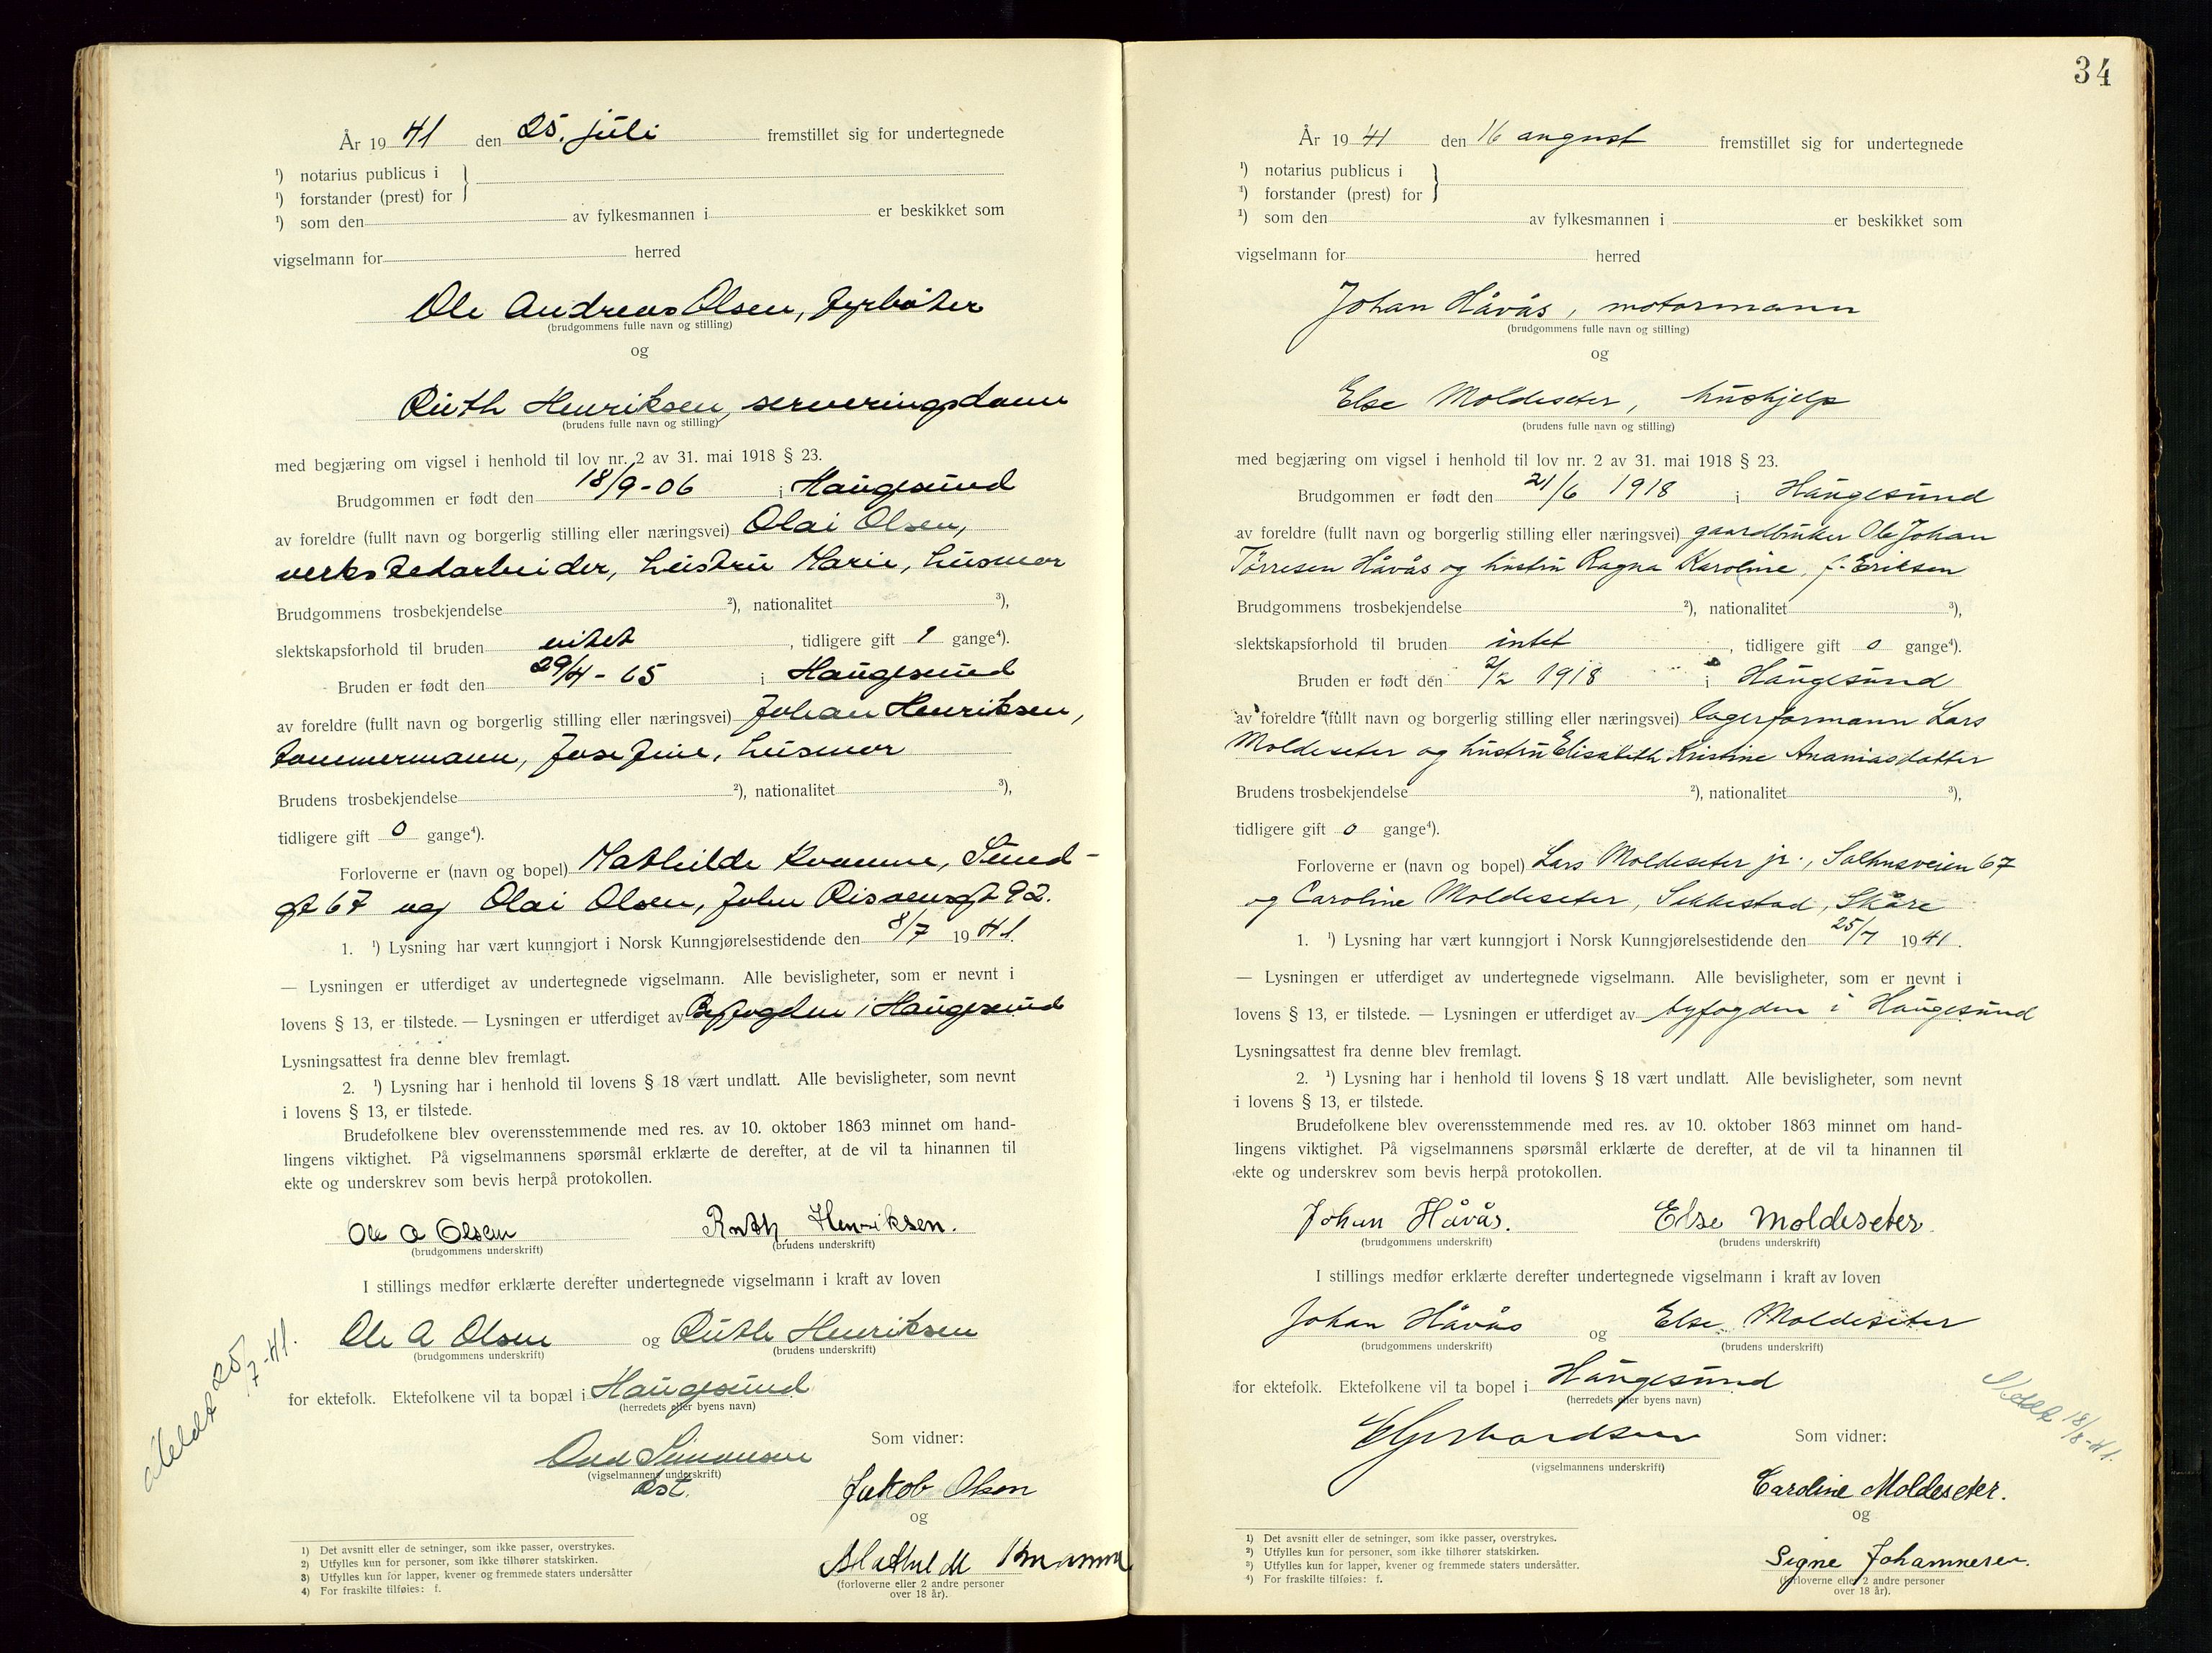 År 1941 den 25. juli fremstillet sig for undertegnede
¹) notarius publicus i
¹) forstander (prest) for
¹) som den av fylkesmannen i er beskikket som
vigselmann for herred
Ole Andreas Olsen, fyrbøter
(brudgommens fulle navn og stilling)
og
Ruth Henriksen, serveringsdame
(brudens fulle navn og stilling)
med begjæring om vigsel i henhold til lov nr. 2 av 31. mai 1918 § 23.
Brudgommen er født den 18/9-06 i Haugesund
av foreldre (fullt navn og borgerlig stilling eller næringsvei) Olai Olsen,
verkstedarbeider, hustru Marie, husmor
Brudgommens trosbekjendelse ²), nationalitet ³),
slektskapsforhold til bruden intet, tidligere gift 1 gange⁴).
Bruden er født den 29/4-15 i Haugesund
av foreldre (fullt navn og borgerlig stilling eller næringsvei) Johan Henriksen,
tømmermann, Josefine, husmor
Brudens trosbekjendelse ²), nationalitet ³),
tidligere gift 0 gange⁴).
Forloverne er (navn og bopel) Mathilde Kvamme, Sund-
gt 67 og Olai Olsen, John Risøensgt 92.
1. ¹) Lysning har vært kunngjort i Norsk Kunngjørelsestidende den 8/7 1941.
— Lysningen er utferdiget av undertegnede vigselmann. Alle bevisligheter, som er nevnt i
lovens § 13, er tilstede. — Lysningen er utferdiget av Byfogden i Haugesund
Lysningsattest fra denne blev fremlagt.
2. ¹) Lysning har i henhold til lovens § 18 vært undlatt. Alle bevisligheter, som nevnt
i lovens § 13, er tilstede.
Brudefolkene blev overensstemmende med res. av 10. oktober 1863 minnet om hand-
lingens viktighet. På vigselmannens spørsmål erklærte de derefter, at de vil ta hinannen til
ekte og underskrev som bevis herpå protokollen.
Ole A Olsen Ruth Henriksen.
(brudgommens underskrift) (brudens underskrift)
I stillings medfør erklærte derefter undertegnede vigselmann i kraft av loven
Ole A Olsen og Ruth Henriksen
(brudgommens underskrift) (brudens underskrift)
for ektefolk. Ektefolkene vil ta bopæl i Haugesund
(herredets eller byens navn)
Meldt 25/7-41.
Odd Simonsen
(vigselmannens underskrift)
ast.
Som vidner:
Jakob Olsen
og
Mathilde Kvamme
(forloverne eller 2 andre personer
over 18 år).
1) Det avsnitt eller de setninger, som ikke passer, overstrykes.
2) Utfylles kun for personer, som ikke tilhører statskirken.
3) Utfylles kun for lapper, kvener og fremmede staters undersåtter
4) For fraskilte tilføies: f.
34
År 1941 den 16 august fremstillet sig for undertegnede
¹) notarius publicus i
¹) forstander (prest) for
¹) som den av fylkesmannen i er beskikket som
vigselmann for herred
Johan Håvås, motormann
(brudgommens fulle navn og stilling)
og
Else Moldeseter, hushjelp
(brudens fulle navn og stilling)
med begjæring om vigsel i henhold til lov nr. 2 av 31. mai 1918 § 23.
Brudgommen er født den 21/6 1918 i Haugesund
av foreldre (fullt navn og borgerlig stilling eller næringsvei) gaardbruker Ole Johan
Tørresen Håvås og hustru Ragna Karoline, f. Eriksen
Brudgommens trosbekjendelse ²), nationalitet ³),
slektskapsforhold til bruden intet, tidligere gift 0 gange⁴).
Bruden er født den 2/2 1918 i Haugesund
av foreldre (fullt navn og borgerlig stilling eller næringsvei) lagerformann Lars
Moldeseter og hustru Elisabeth Kristine Ananiasdatter
Brudens trosbekjendelse ²), nationalitet ³),
tidligere gift 0 gange⁴).
Forloverne er (navn og bopel) Lars Moldeseter jr., Salhusveien 67
og Caroline Moldeseter, Sakkestad, Skåre
1. ¹) Lysning har vært kunngjort i Norsk Kunngjørelsestidende den 25/7 1941.
— Lysningen er utferdiget av undertegnede vigselmann. Alle bevisligheter, som er nevnt i
lovens § 13, er tilstede. — Lysningen er utferdiget av byfogden i Haugesund
Lysningsattest fra denne blev fremlagt.
2. ¹) Lysning har i henhold til lovens § 18 vært undlatt. Alle bevisligheter, som nevnt
i lovens § 13, er tilstede.
Brudefolkene blev overensstemmende med res. av 10. oktober 1863 minnet om hand-
lingens viktighet. På vigselmannens spørsmål erklærte de derefter, at de vil ta hinannen til
ekte og underskrev som bevis herpå protokollen.
Johan Håvås. Else Moldeseter.
(brudgommens underskrift) (brudens underskrift)
I stillings medfør erklærte derefter undertegnede vigselmann i kraft av loven
Johan Håvås og Else Moldeseter
(brudgommens underskrift) (brudens underskrift)
for ektefolk. Ektefolkene vil ta bopel i Haugesund
(herredets eller byens navn)
Meldt 18/8-41.
EGerhardsen
(vigselmannens underskrift)
Som vidner:
Caroline Moldeseter.
og
Signe Johannesen.
(forloverne eller 2 andre personer
over 18 år).
1) Det avsnitt eller de setninger, som ikke passer, overstrykes.
2) Utfylles kun for personer, som ikke tilhører statskirken.
3) Utfylles kun for lapper, kvener og fremmede staters undersåtter.
4) For fraskilte tilføies: f.